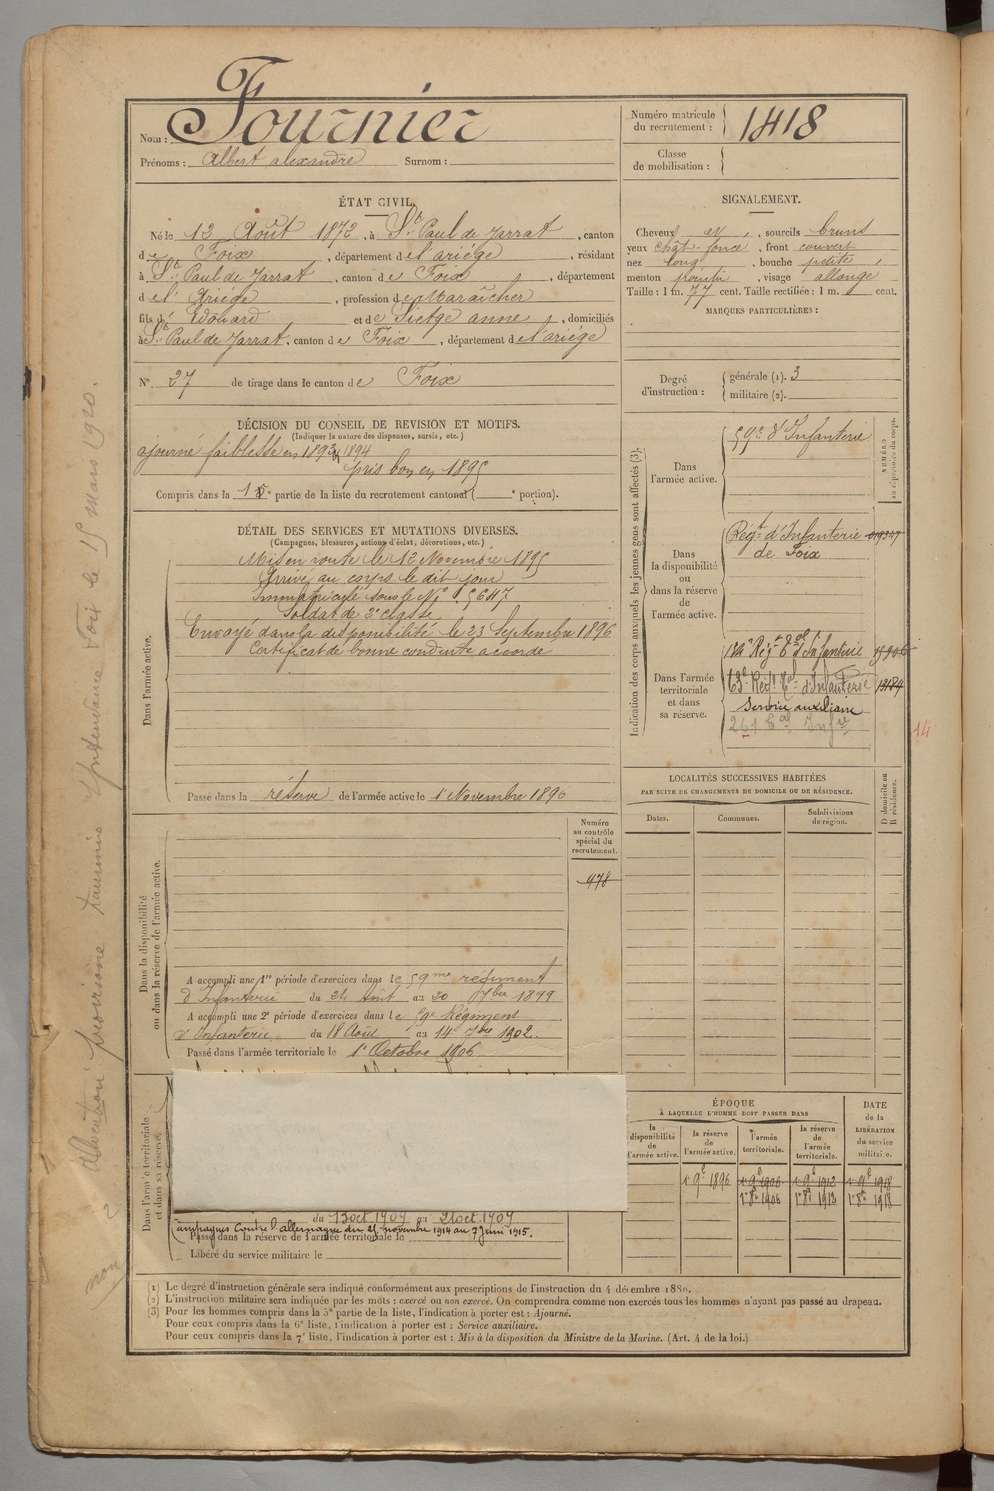 Nom : Fournier
Prénoms : Albert alexandre Surnom :
Numéro matricule
du recrutement : 1418
Classe
de mobilisation :
ÉTAT CIVIL.
Né le 12 Août 1872, à St Paul de Jarrat, canton
de Foix, département de l'ariége, résidant
à St Paul de Jarrat, canton de Foix, département
de l'Ariége, profession de Maraîcher
fils d' Edouard et de Sietge anne, domiciliés
à St Paul de Jarrat, canton de Foix, département de l'ariége
N° 27 de tirage dans le canton de Foix
SIGNALEMENT.
Cheveux et, sourcils bruns
yeux chât. foncé, front couvert
nez long, bouche petite,
menton pointu, visage allongé
Taille : 1 m. 77 cent. Taille rectifiée : 1 m. cent.
MARQUES PARTICULIÈRES :
Degré
d'instruction :
générale (1). 3
militaire (2).
DÉCISION DU CONSEIL DE REVISION ET MOTIFS.
(Indiquer la nature des dispenses, sursis, etc.)
ajourné faiblesse en 1893 1894
pris bon en 1895
Compris dans la 1e partie de la liste du recrutement cantonal ( e portion).
DÉTAIL DES SERVICES ET MUTATIONS DIVERSES.
(Campagnes, blessures, actions d'éclat, décorations, etc.)
Dans l'armée active.
Mis en route le 12 Novembre 1895
Arrivé au corps le dit jour
Immatriculé sous le N° 5647
Soldat de 2e classe
Envoyé dans la disponibilité le 23 Septembre 1896
Certificat de bonne conduite accordé
Passé dans la réserve de l'armée active le 1r Novembre 1896
Indication des corps auxquels les jeunes gens sont affectés (3).
NUMÉRO
au répertoire du corps.
Dans
l'armée active.
59e d'Infanterie
Dans
la disponibilité
ou
dans la réserve
de
l'armée active.
Régt d'Infanterie
de Foix
Dans l'armée
territoriale
et dans
sa réserve.
Régt tal d'Infanterie
Régt tal d'Infanterie 13184
Service auxiliaire
14
LOCALITÉS SUCCESSIVES HABITÉES
PAR SUITE DE CHANGEMENTS DE DOMICILE OU DE RÉSIDENCE.
Dates.
Communes.
Subdivisions
de région.
D domicile ou
R résidence.
Dans la disponibilité
ou dans la réserve de l'armée active.
Numéro
au contrôle
spécial du
recrutement.
478
A accompli une 1re période d'exercices dans le 59me régiment
d'Infanterie du 24 Août au 20 7bre 1899
A accompli une 2e période d'exercices dans le 59e Régiment
d'Infanterie du 18 Août au 14 7bre 1902.
Passé dans l'armée territoriale le 1r Octobre 1906
Dans l'armée territoriale
et dans sa réserve.
du 13 oct 1907 au 21 oct. 1907
Campagnes contre l'allemagne du 25 novembre 1914 au 7 Juin 1915.
Passé dans la réserve de l'armée territoriale le
Libéré du service militaire le
ÉPOQUE
À LAQUELLE L'HOMME DOIT PASSER DANS
DATE
de la
LIBÉRATION
du service
militaire.
la
disponibilité
de
l'armée active.
la réserve
de
l'armée active.
l'armée
territoriale.
la réserve
de
l'armée
territoriale.
1r 9e 1896 1r 9e 1906 1r 9e 1912 1r 9e 1918
1r 8e 1906 1r 8e 1913 1r 8e 1918
(1) Le degré d'instruction générale sera indiqué conformément aux prescriptions de l'instruction du 4 décembre 1889.
(2) L'instruction militaire sera indiquée par les mots : exercé ou non exercé. On comprendra comme non exercés tous les hommes n'ayant pas passé au drapeau.
(3) Pour les hommes compris dans la 5e partie de la liste, l'indication à porter est : Ajourné.
Pour ceux compris dans la 6e liste, l'indication à porter est : Service auxiliaire.
Pour ceux compris dans la 7e liste, l'indication à porter est : Mis à la disposition du Ministre de la Marine. (Art. 4 de la loi.)
Allocation provisoire Intendance Foix le 15 mars 1920.
non